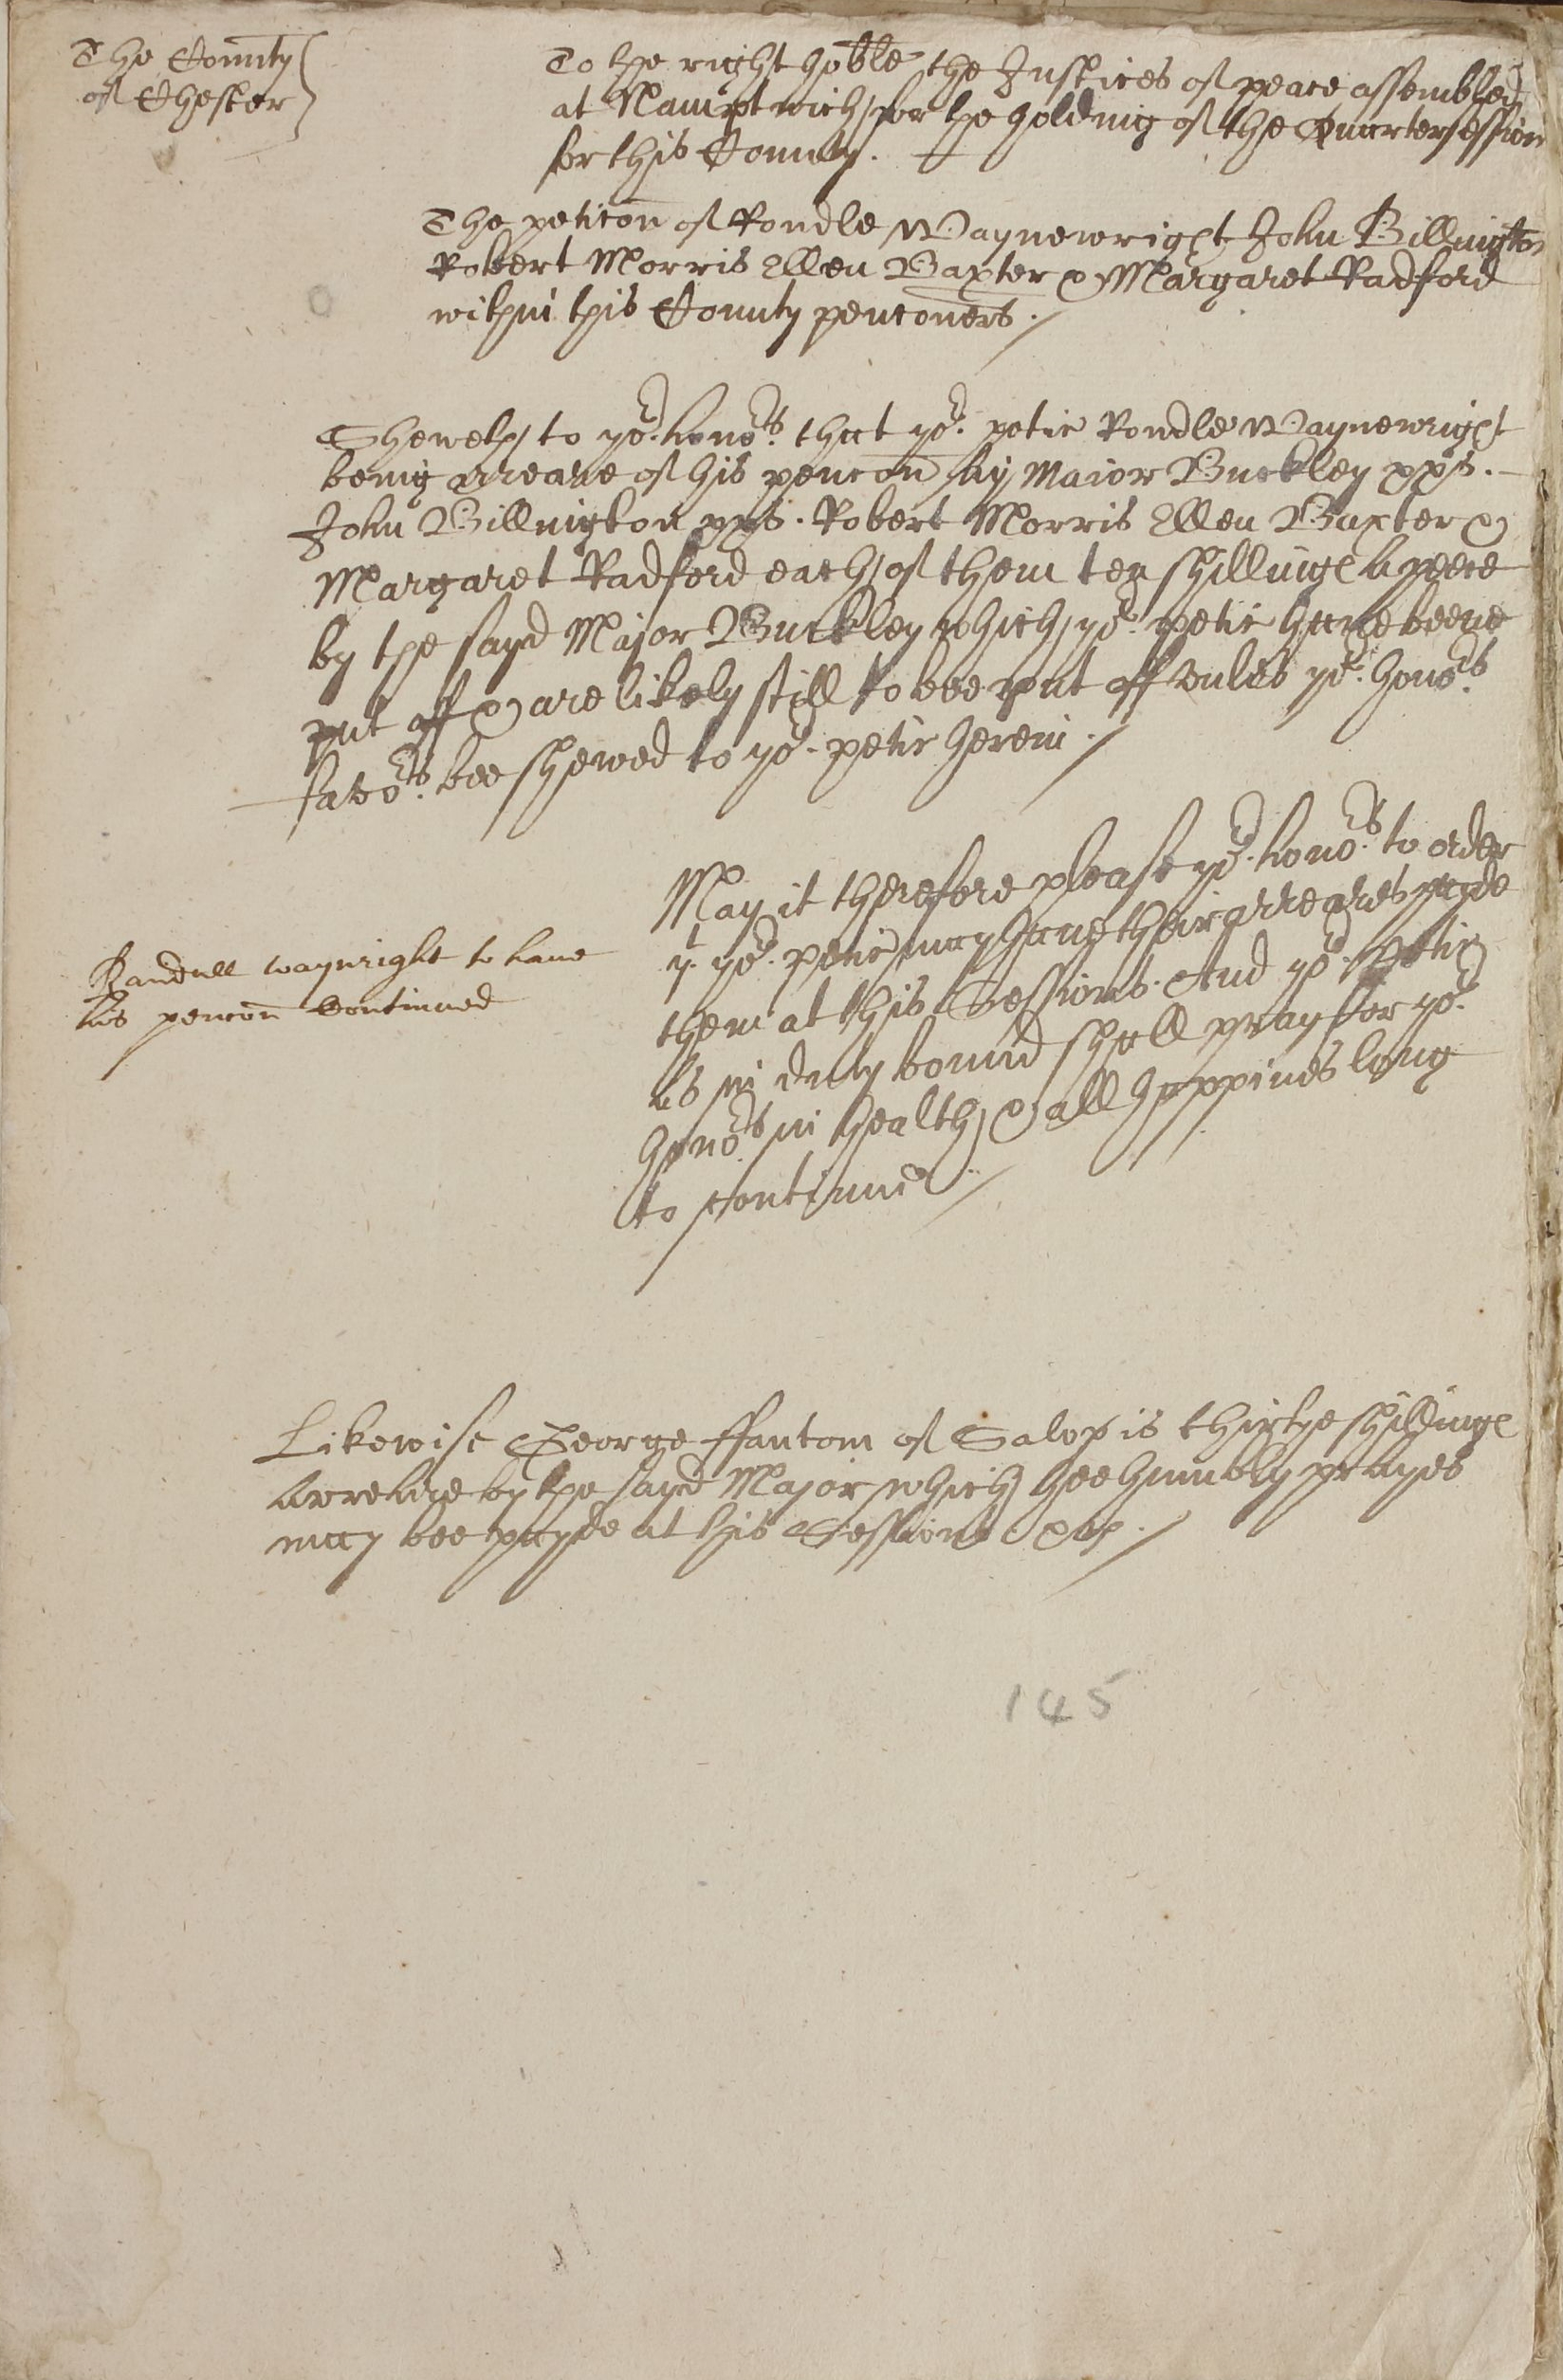 The County
of Chester
To the right hoble the Justices of peace assembled
at Namptwich for the holding of the Quartersession
for this County.
The peticon of Rondle Waynewright John Billington
Robert Morris Ellen Baxter & Margaret Radford
within this County penconers.
Sheweth to yor. honors. that yor. petic Rondle Waynewright
being arreare of his pencon by Maior Buckley xxs.
John Billington xxs. Robert Morris Ellen Baxter &
Margaret Radford each of them ten shillings a peece
by the sayd Major Buckley which yor. petic have beene
put off & are likely still to bee put off vnles yor. honors.
favors. bee shewed to yor. petic herein.
May it therefore please yor. honors. to order
yt. yor. petic may have their arreares payde
them at this Sessions. And yor. Petic
as in duty bound shall pray for yor.
honors. in health & all happines long
to continue
Randull waynright to have
his pencon Continued
Likewise George ffantom of Salop is thirtye shillings
arreare by the sayd Major which hee humbly prayes
may bee payde at this Sessions
145